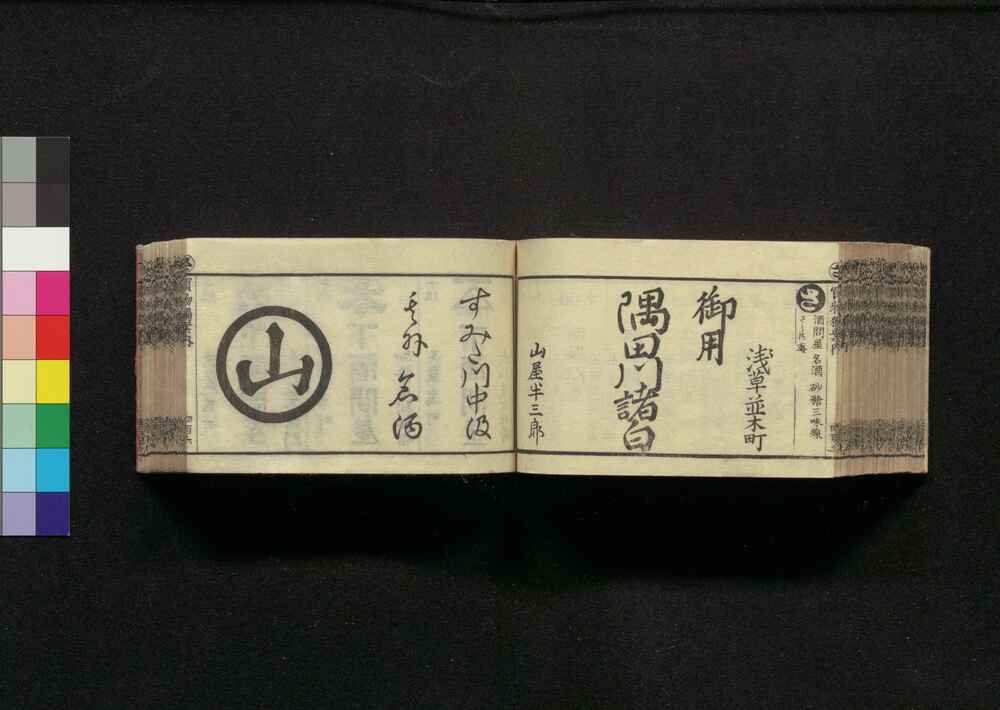 さ
酒問屋 名酒 砂糖 三味線
浅草並木町
御用
隅田川諸白
山屋半三郎
すみた川中汲
其外 名酒
山